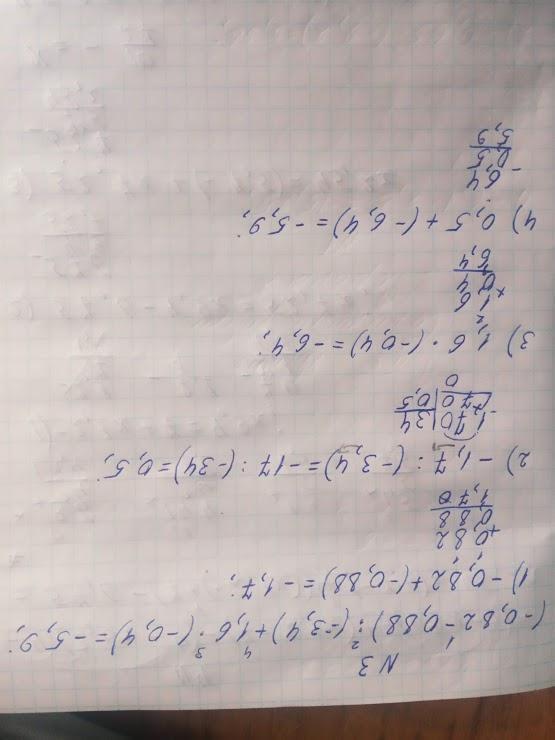 N3
(-0,82-0,88):(-3,4)+1,6·(-0,4)=-5,9;
1 2 4 3
1) -0,82+(-0,88)=-1,7;
+0,82
0,88
1,70
2) -1,7:(-3,4)=-17:(-34)=0,5;
-170|34
170|0,5
0
3) 1,6·(-0,4)=-6,4;
2
×1,6
0,4
6,4
4) 0,5+(-6,4)=-5,9;
-6,4
0,5
5,9